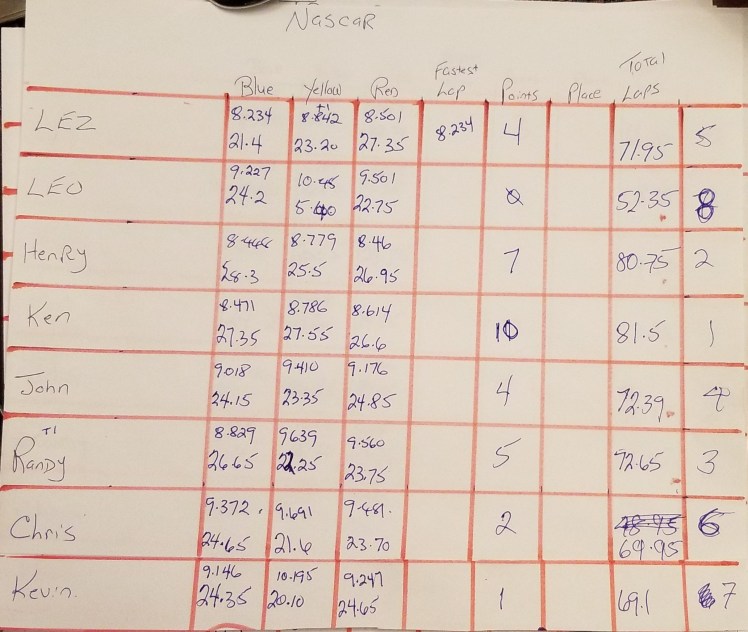 NASCAR
Blue Yellow Red Fastest Lap Points Place Total Laps
LEZ 8.234 T1 8.842 8.501 8.234 4 5
21.4 23.20 27.35 71.95
LEO 9.227 10.45 9.501 0 8
24.2 5.40 22.75 52.35
Henry 8.446 8.779 8.46 7 2
28.3 25.5 26.95 80.75
Ken 8.471 8.786 8.614 10 1
27.35 27.55 26.6 81.5
John 9.018 9.410 9.176 4 4
24.15 23.35 24.85 72.39
T1 8.829 9639 9.560 5 3
Randy 26.65 22.25 23.75 72.65
Chris 9.372 9.691 9.481 2 48.95 6
24.65 21.6 23.70 69.95
Kevin. 9.146 10.195 9.247 1 7
24.35 20.10 24.65 69.1